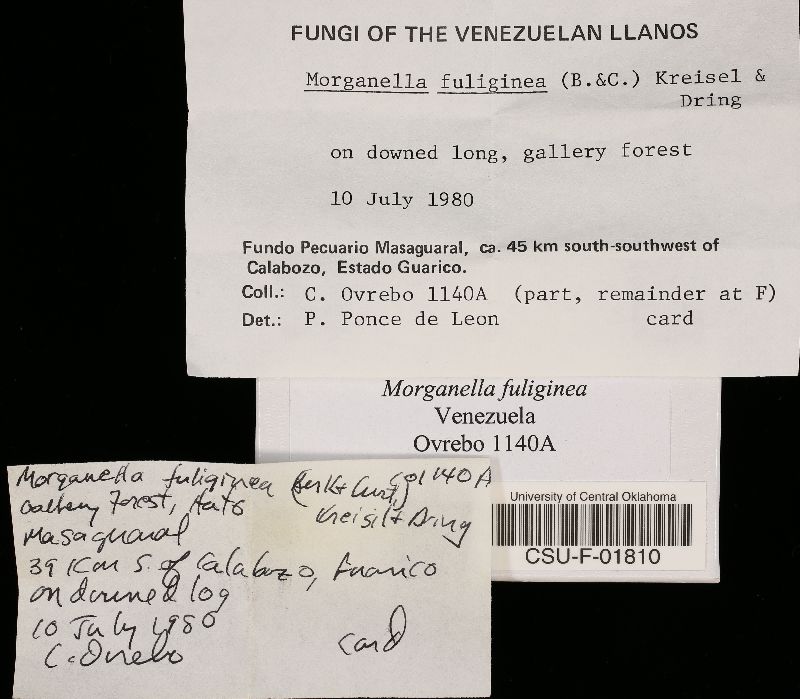 FUNGI OF THE VENEZUELAN LLANOS
Morganella fuliginea (B.&C.) Kreisel &
Dring
on downed long, gallery forest
10 July 1980
Fundo Pecuario Masaguaral, ca. 45 km south-southwest of
Calabozo, Estado Guarico.
Coll.: C. Ovrebo 1140A (part, remainder at F)
Det.: P. Ponce de Leon card
Morganella fuliginea
Venezuela
Ovrebo 1140A
University of Central Oklahoma
CSU-F-01810
Morganella fuliginea (Berk + Curt.) 1140A
Gallery Forest, Hato Kreisil + Dring
Masaguaral
39 Km S. of Calabozo, Guarico
on downed log
10 July 1980
C. Ovrebo card